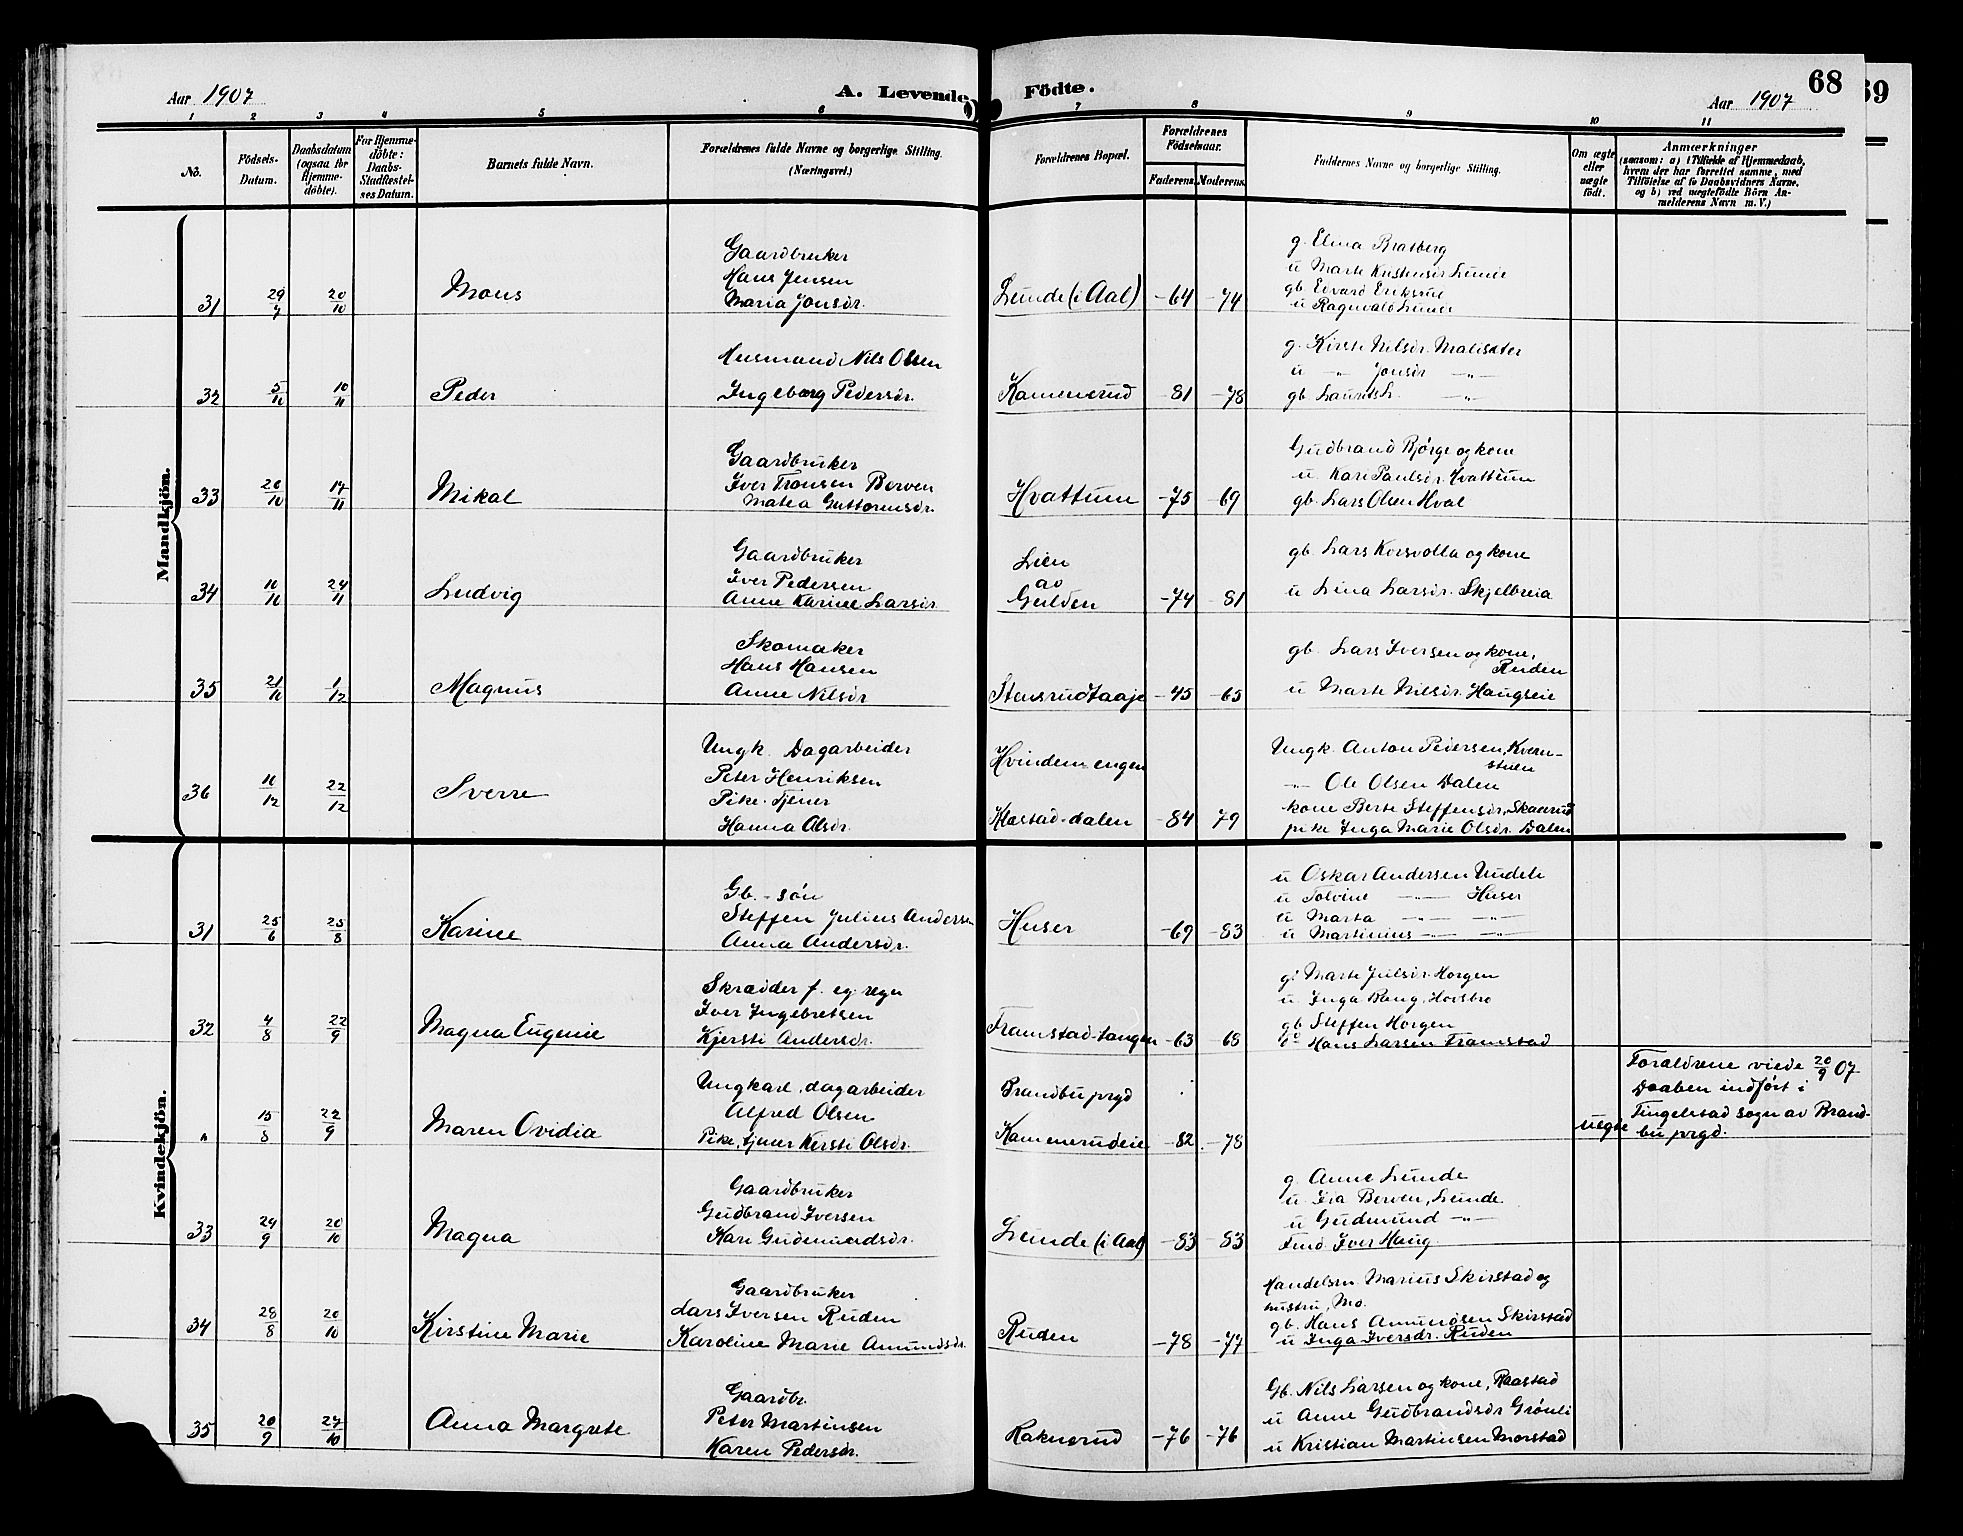 68
69
Aar 1907
A. Levende
Födte.
Aar 1907
1 2 3 4 5 6 7 8 9 10 11
No.
Födsels-
Datum.
Daabsdatum
(ogsaa for
Hjemme-
döbte).
For Hjemme-
döbte:
Daabs-
Stadfæstel-
ses Datum.
Barnets fulde Navn.
Forældrenes fulde Navne og borgerlige Stilling.
(Næringsvei.)
Forældrenes Bopæl.
Forældrenes
Födselsaar.
Faderens.
Moderens.
Faddernes Navne og borgerlige Stilling.
Om ægte
eller
uægte
födt.
Anmærkninger
(saasom: a) i Tilfælde af Hjemmedaab,
hvem der har forrettet samme, med
Tilföielse af to Daabsvidners Navne,
og b) ved uægtefödte Börn An-
melderens Navn m. V.)
Mandkjön.
31 29/7 20/10 Mons
Gaardbruker
Hans Jensen
Maria Jonsdr.
Lunde (i Aal) -64 -74
g. Elina Bratberg
u Marte Kristensdr Lunde
gb. Edvard Eriksrud
u Ragnvald Lunde
32 5/10 10/11 Peder
Husmand Nils Olsen
Ingeborg Pedersdr.
Kamerud 81 -78
g. Kirsti Nilsdr.
u -"- Jonsdr -"-
gb. Laurits L. -"-
33 20/10 17/11 Mikal
Gaardbruker
Iver Fransen Berven
Matea Guttormsdr.
Hvattum -75 -69
Gudbrand Bjørge og kone
u Kari Paulsdr. Hvattum
gb. Lars Olsen Hval
34 10/10 24/11 Ludvig
Gaardbruker
Iver Pedersen
Anne Karine Larsdr
Lien
av
Gulden -74 -81
gb. Lars Korsvolla og kone
u Lina Larsdr. Skjelbreia
35 21/10 1/12 Magnus
Skomaker
Hans Hansen
Anne Nilsdr
Stensrudtaaje -45 -65
gb. Lars Iversen og kone,
Ruden
u Marte Nilsdr. Haugseie
36 10/12 22/12 Sverre
Ungk. Dagarbeider
Peter Henriksen
Pike. Tjener
Hanna Olsdr.
Hvindem engen
Klæstad-dalen -84 79
Ungk. Anton Pedersen, Kvern-
stuen
-"- Ole Olsen Dalen
kone Berte Steffensdr. Skaarud
pike Inga Marie Olsdr. Dalen
Kvindekjön.
31 25/6 25/8 Karine
Gb. - søn
Steffen Julius Andersen
Anna Andersdr.
Huser -69 -83
u Oskar Andersen Undeli
u Tolvine -"- Huser
u Marta -"- -"-
u Martinius -"- -"-
32 4/8 22/9 Magna Eugenie
Skrædder f. eg. regn
Iver Ingebretsen
Kjersti Andersdr.
Framstad-tangen -63 68
g. Marte Juilsdr. Horgen
u Inga Bang, Hovsbro
gb Steffen Horgen
do Hans Larsen Framstad
" 15/8 22/9 Maren Ovidia
Ungkarl, dagarbeider
Alfred Olsen
Pike, tjener Kersti Olsdr.
Brandbu prgd
Kamerudeie -82 -78
uegte
Foraldrene viede 20/9 07
Daaben indført i
Tingelstad sogn av Brand-
bu prgd.
33 24/9 20/10 Magna
Gaardbruker
Gudbrand Iversen
Kari Gudmundsdr.
Lunde (i Aal) -83 -83
g. Anne Lunde
u. Ida Berven, Lunde
u Gudmund -"-
Iver Haug
34 28/8 20/10 Kirstine Marie
Gaardbruker
Lars Iversen Ruden
Karoline Marie Amundsdr.
Ruden -78 -77
Handelsm. Marius Skirstad og
hustru, Mo.
gb. Hans Amundsen Skirstad
u Inga Iversdr. Ruden
35 20/9 27/10 Anna Margrete
Gaardbr.
Peter Martinsen
Karen Pedersdr.
Raknerud -76 -76
Gb. Nils Larsen og kone, Raastad
u Anne Gudbrandsdr Grønli
u Kristian Martinsen Morstad